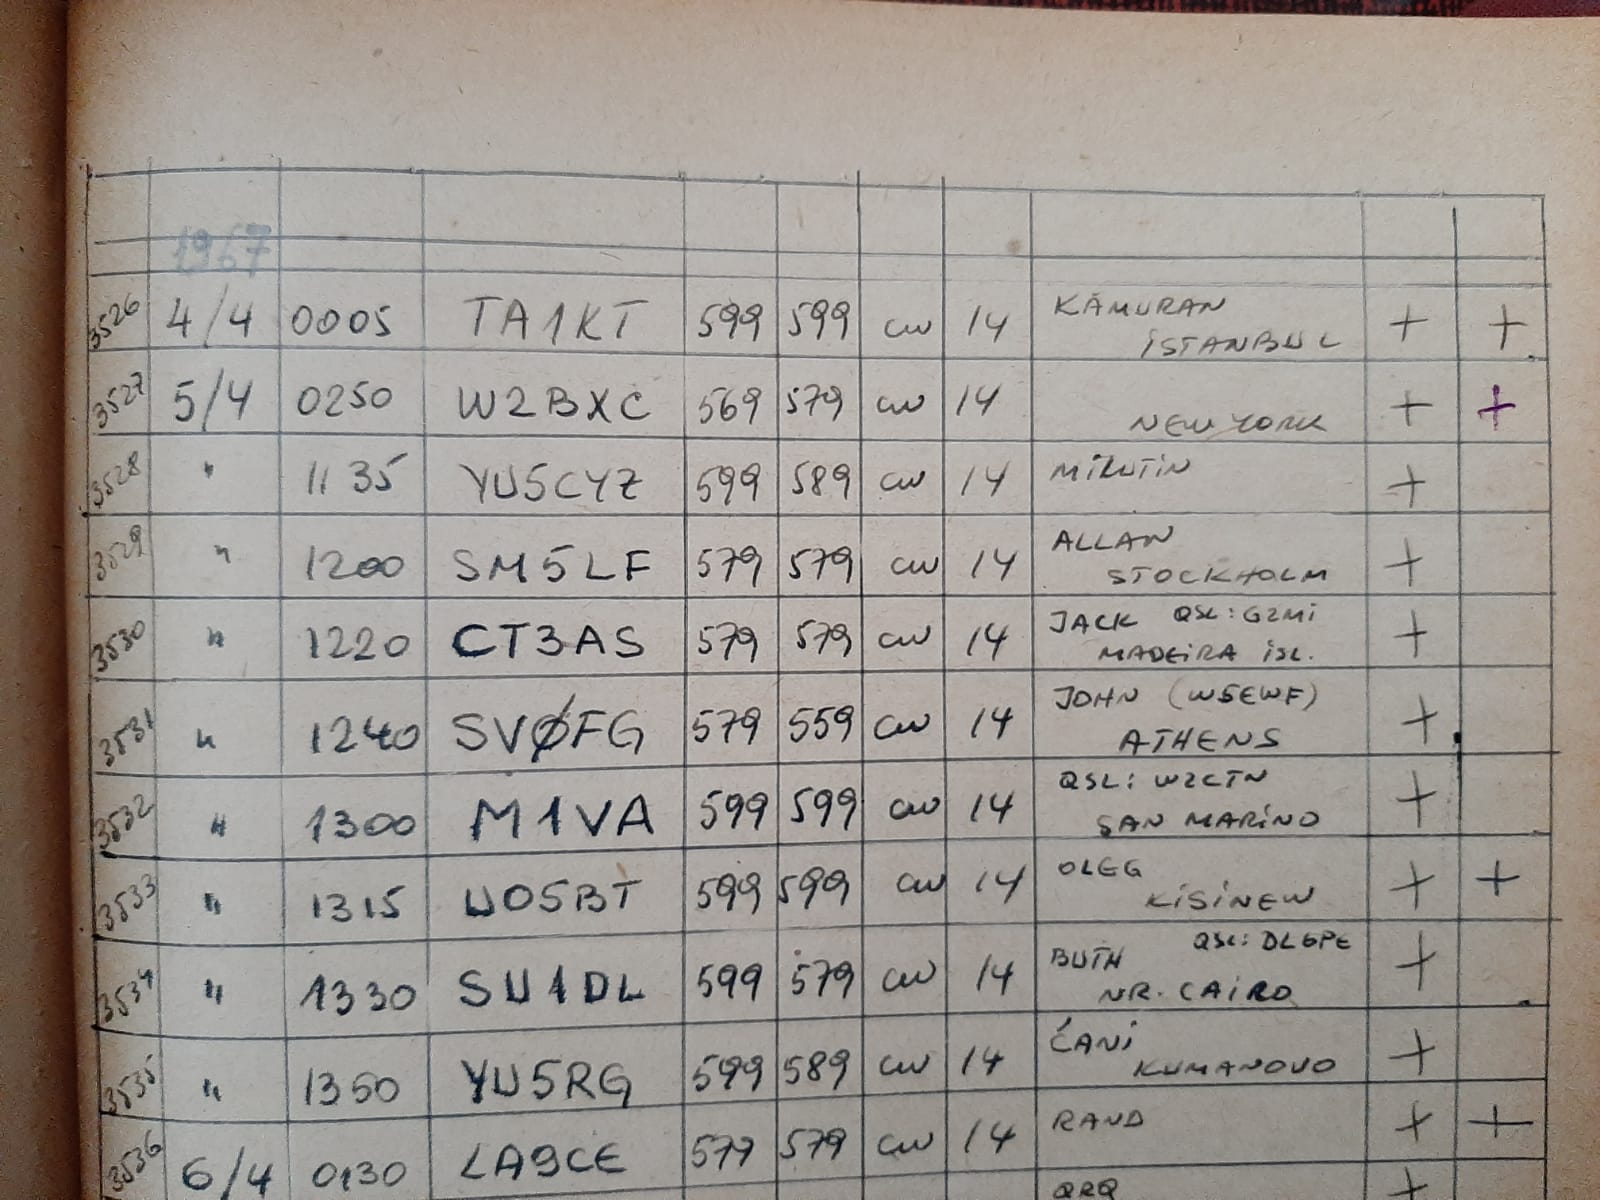 1967
3526 4/4 0005 TA1KT 599 599 cw 14 KÂMURAN
İSTANBUL + +
3527 5/4 0250 W2BXC 569 579 cw 14
NEW YORK + +
3528 " 1135 YU5CYZ 599 589 cw 14 MİLUTİN +
3529 " 1200 SM5LF 579 579 cw 14 ALLAN
STOCKHOLM +
3530 " 1220 CT3AS 579 579 cw 14 JACK QSL: G2Mİ
MADEİRA İSL. +
3531 " 1240 SVØFG 579 559 cw 14 JOHN (W5EWF)
ATHENS +
3532 " 1300 M1VA 599 599 cw 14 QSL: W2CTN
SAN MARİNO +
3533 " 1315 UO5BT 599 599 cw 14 OLEG
KİSİNEW + +
3534 " 1330 SU1DL 599 579 cw 14 BUTH QSL: DL6PE
NR. CAİRO +
3535 " 1350 YU5RG 599 589 cw 14 ĆANİ
KUMANOVO +
3536 6/4 0130 LA9CE 579 579 cw 14 RAND + +
QRQ +